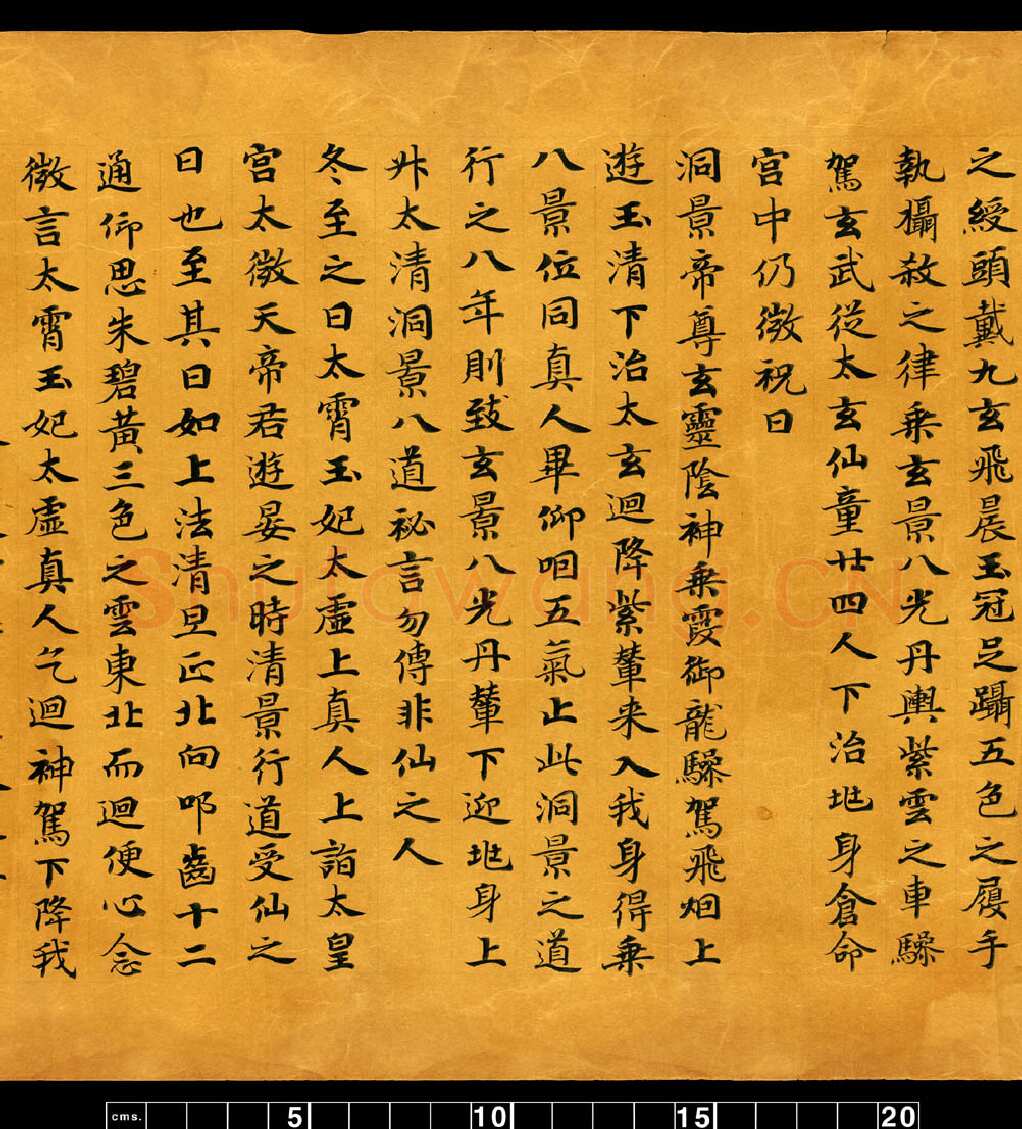 之綬頭戴九玄飛晨玉冠足躡五色之履手
執攝殺之律乗玄景八光丹輿紫雲之車驂
駕玄武従太玄仙童廿四人下治地身倉命
宮中仍微祝曰
洞景帝尊玄靈陰神乗霞御龍驂駕飛烟上
遊玉清下治太玄迴降紫輦来入我身得乗
八景位同真人畢仰咽五氣止此洞景之道
行之八年則致玄景八光丹輦下迎地身上
升太清洞景八道祕言勿傳非仙之人
冬至之日太霄玉妃太虛上真人上詣太皇
宮太微天帝君遊宴之時清景行道受仙之
日也至其日如上法清旦正北向叩齒十二
通仰思朱碧黃三色之雲東北而迴便心念
微言太霄玉妃太虛真人乞迴神駕下降我
Shufawang.CN
cms. 5 10 15 20